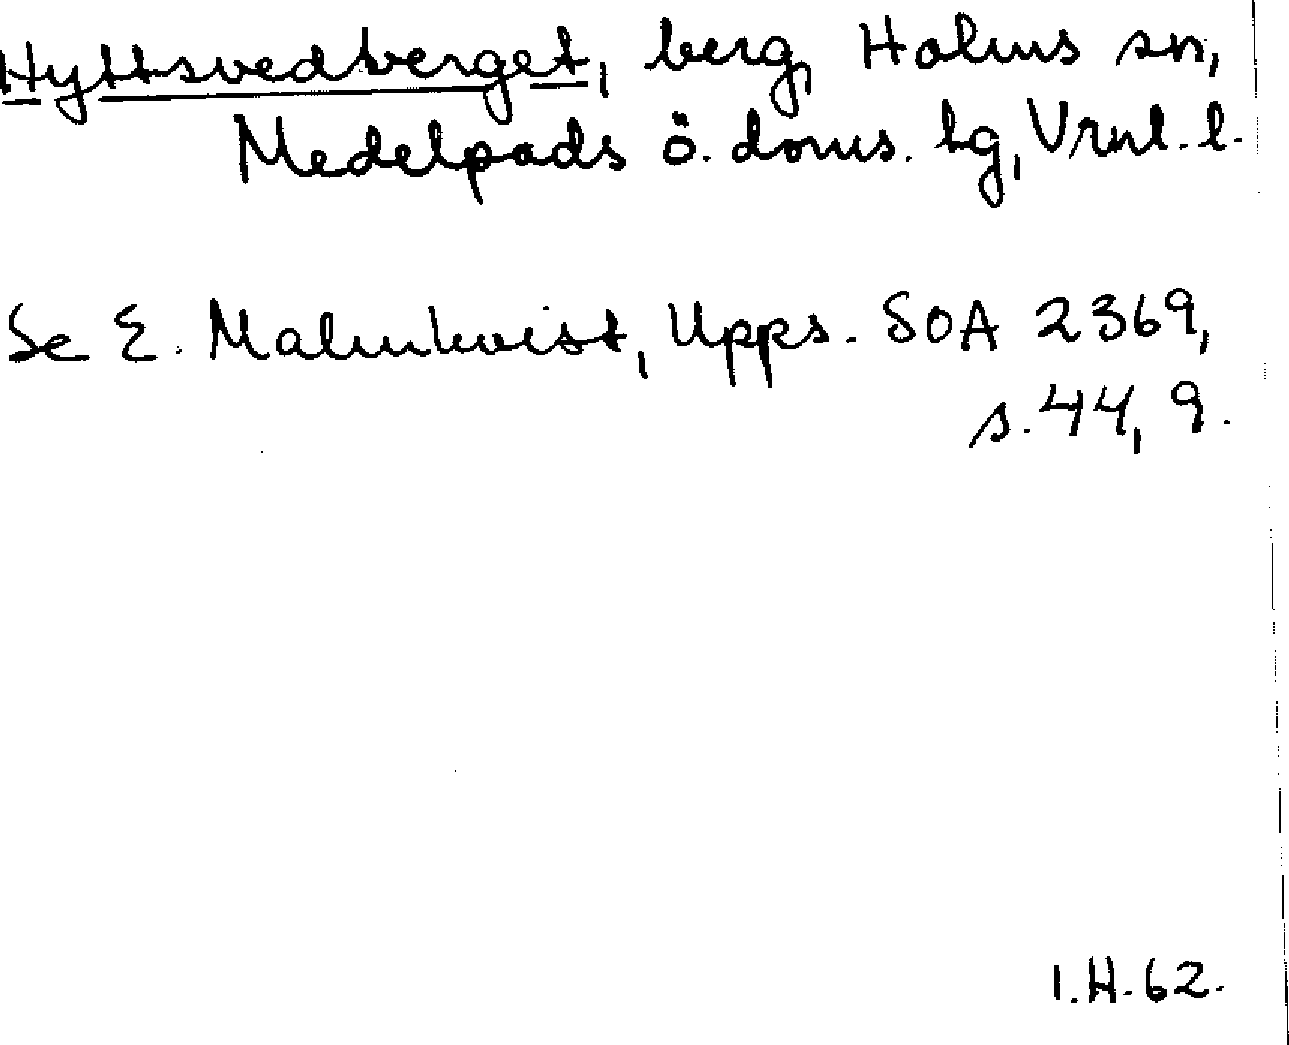 Hyttsvedberget, berg, Holms sn,
Medelpads ö. doms. tg, Vrnl. l.
Se E. Malmkvist, Upps. SOA 2369,
s. 44, 9.
I.H. 62.